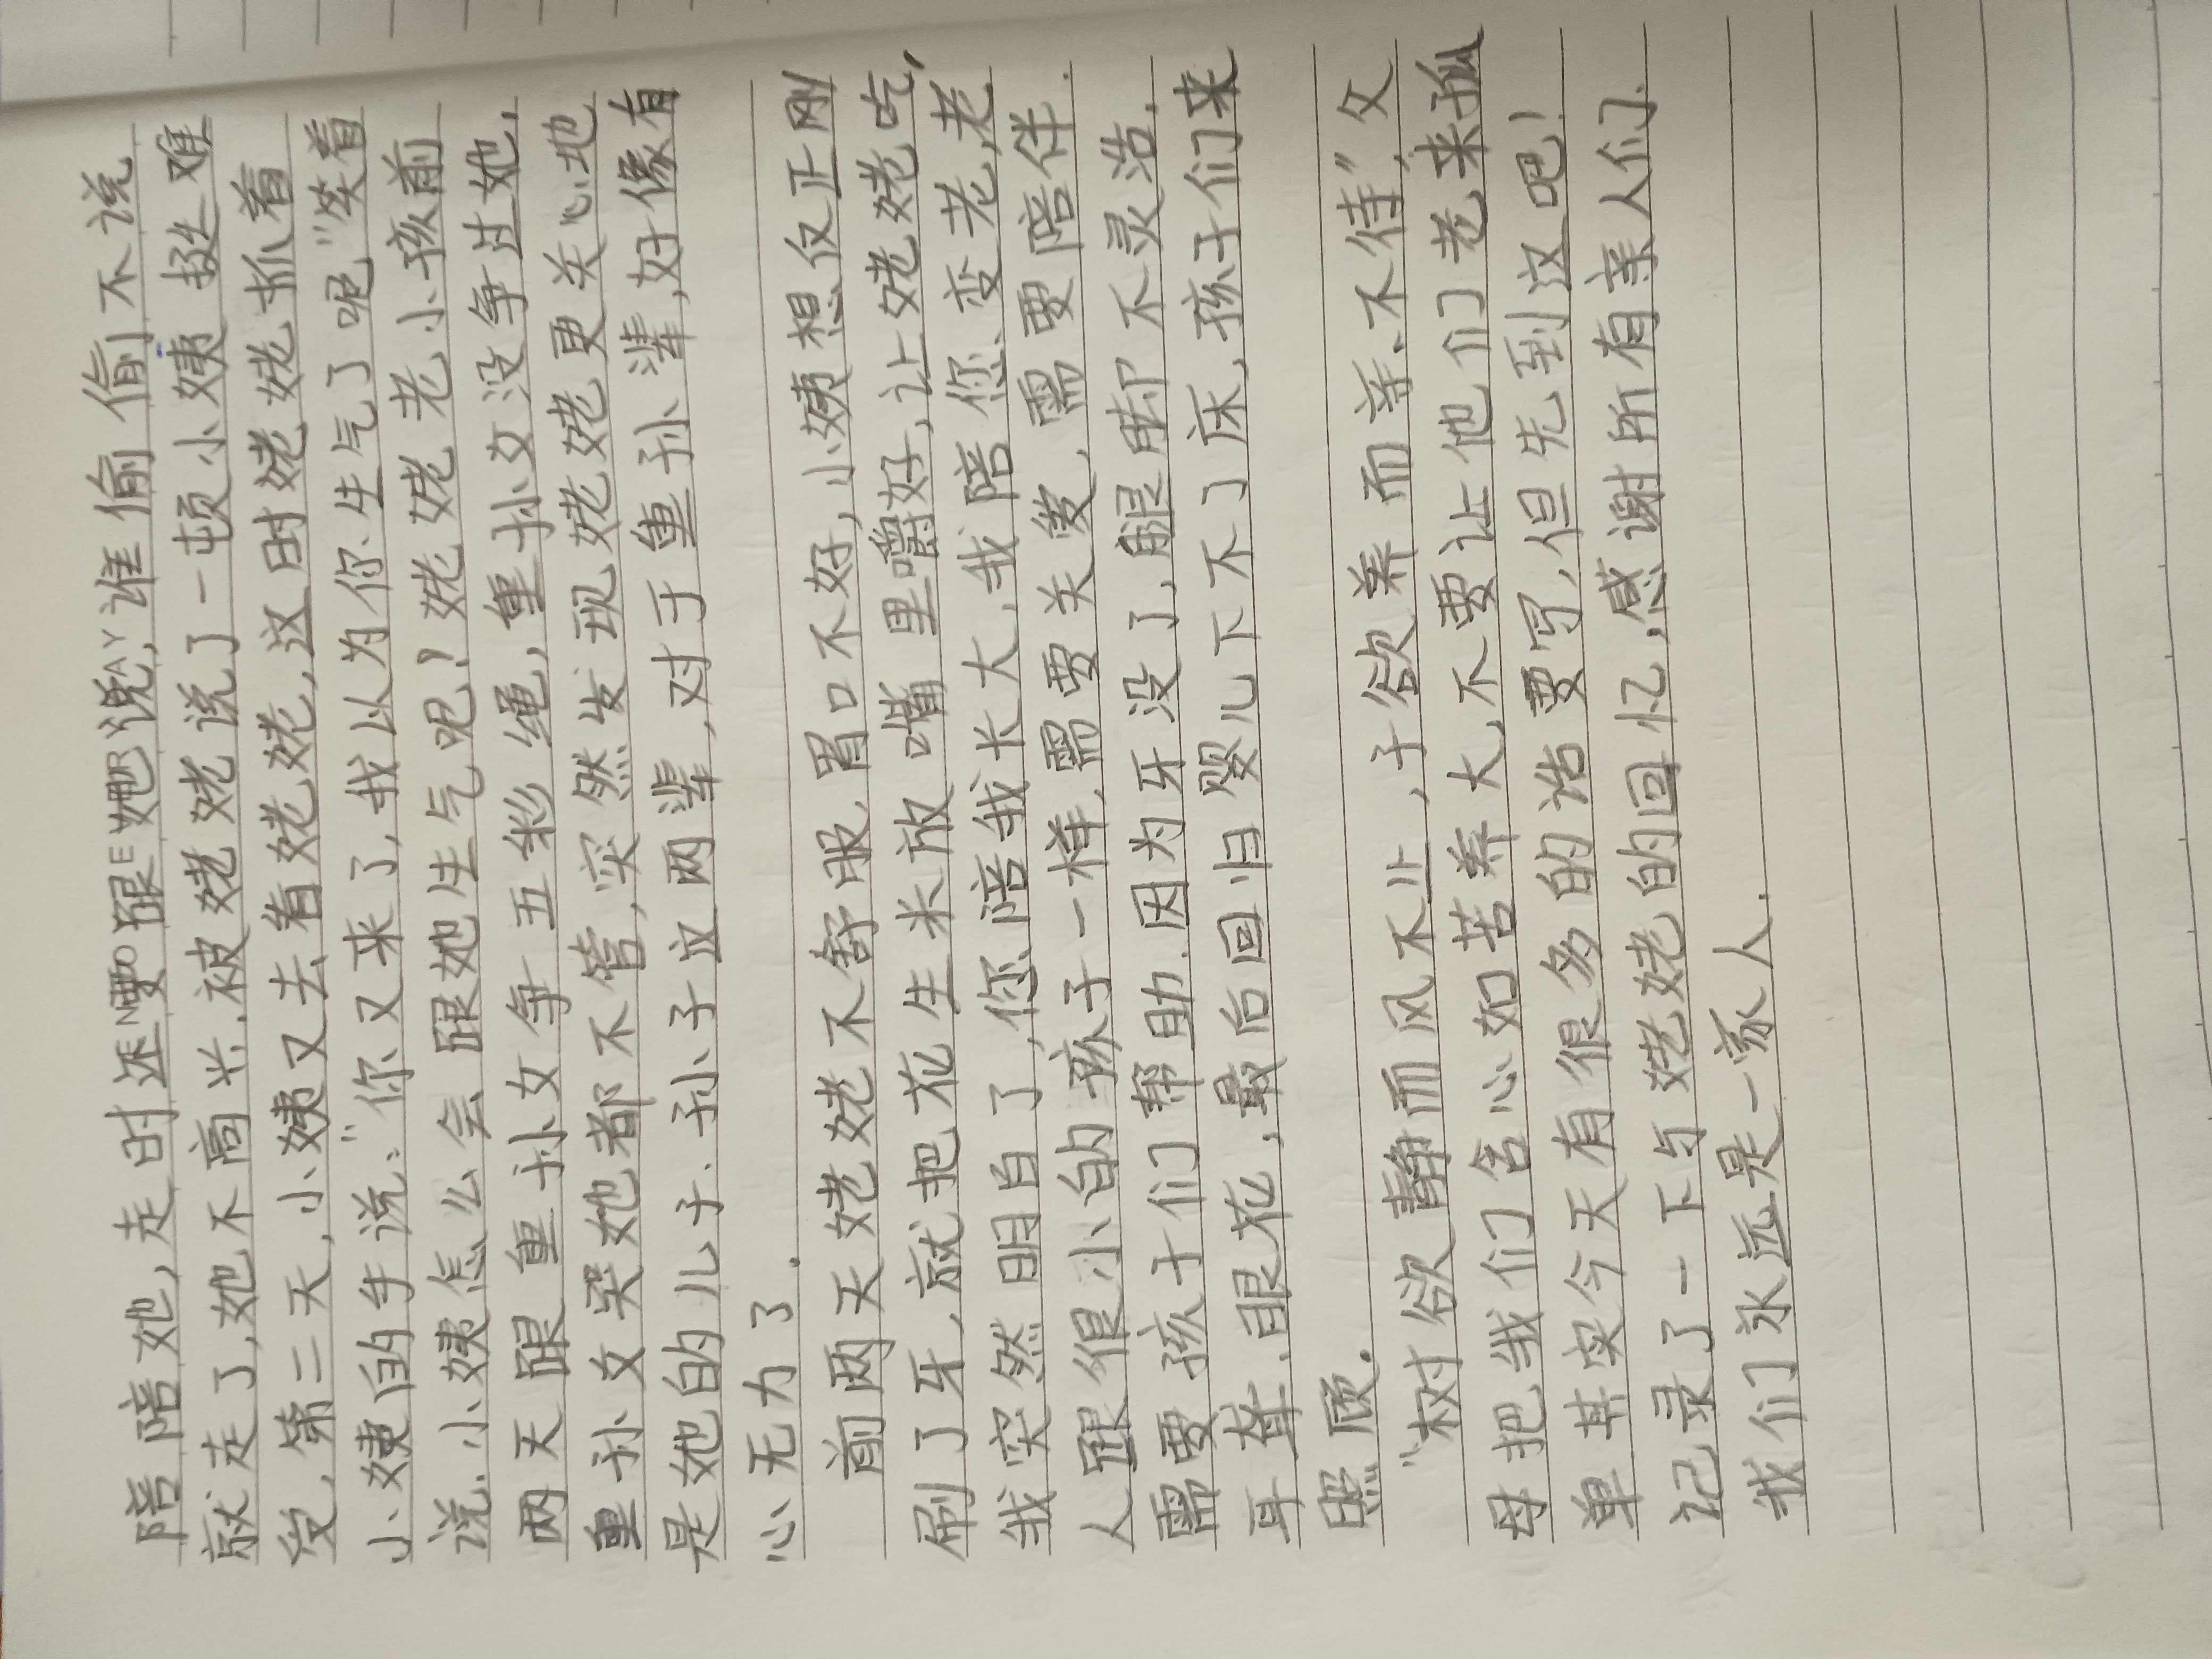 陪陪她,走时还要跟她说,谁偷偷不说
就走了,她不高兴.被姥姥说了一顿小姨挺难
受,第二天,小姨又去看姥姥,这时姥姥抓着
小姨的手说:"你又来了,我以为你生气了呢"笑着
说.小姨怎么会跟她生气呢!姥姥老小孩前
两天跟重孙女争五彩绳,重孙女没争过她,
重孙女哭她都不管,突然发现姥姥更关心地
是她的儿子.孙子这两辈,对于重孙辈,好像有
心无力了.
前两天姥姥不舒服,胃口不好,小姨想仅正刚
刷了牙,就把花生米放嘴里嚼好,让姥姥吃,
我突然明白了,你陪我长大,我陪您变老,老
人跟很小的孩子一样,需要关爱,需要陪伴.
需要孩子们帮助.因为牙没了,腿脚不灵活,
耳聋.眼花,最后回归婴儿下不了床,孩子们来
照顾.
"树欲静而风不止,子欲养而亲不待",父
母把我们含心如苦养大,不要让他们老来孤
单其实今天有很多的话要写,但先到这吧!
记录了一下与姥姥的回忆,感谢所有亲人们.
我们永远是一家人.